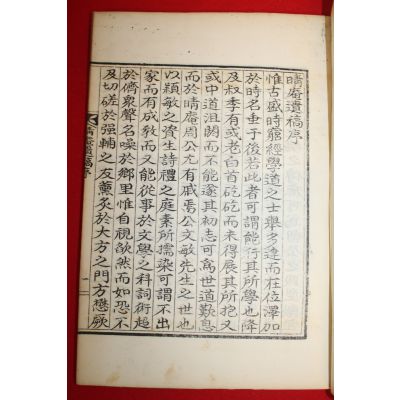 晴庵遺稿序
惟古盛時窮經學道之士擧多達而在位澤加
於時名垂于後若此者可謂能行其所學也降
及叔季有或老白首矻矻而未得展其所抱又
或中道沮閼而不能遂其初志可爲世道歎息
而於晴庵周公尤有感焉公文敏先生之世也
以穎敏之資生詩禮之庭素所擩染可謂不出
家而有成敎而又能從事於文學之科詞術超
於儕衆聲名噪於鄉里惟自視欿然而如恐不
及切磋於强輔之友薰炙於大方之門方懋厥
晴庵遺稿序
一